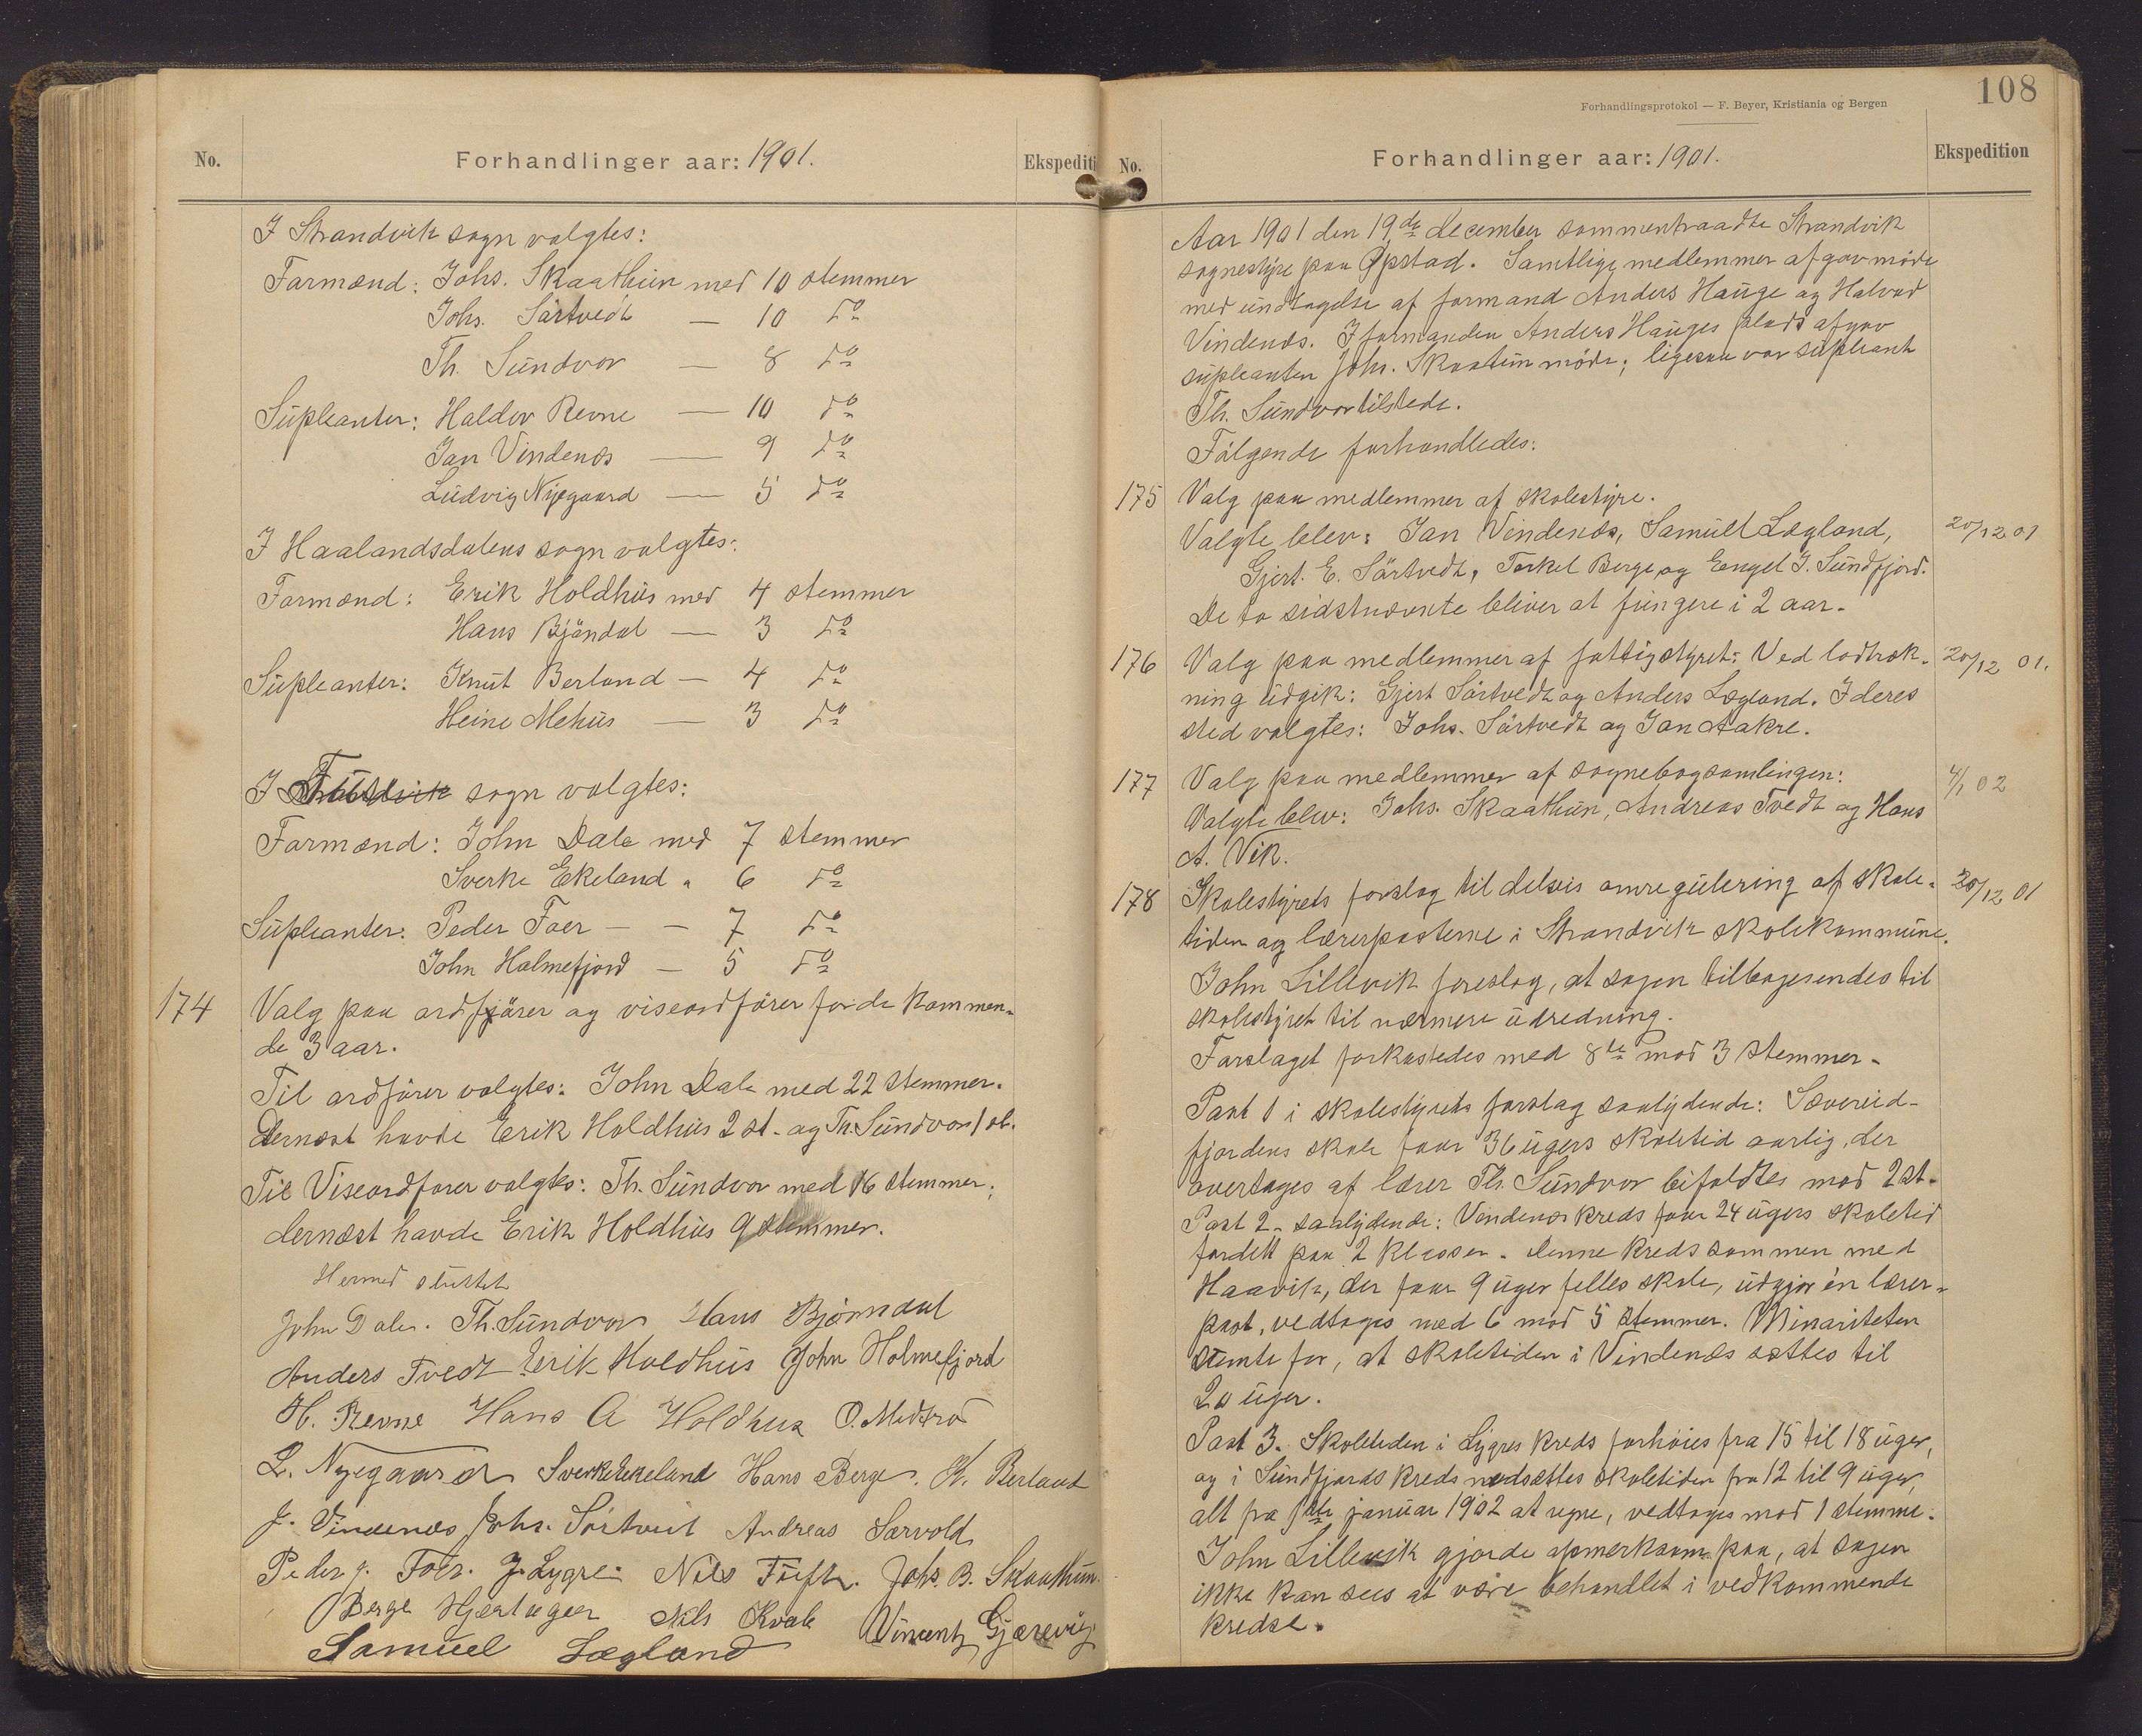 No.
Forhandlinger aar: 1901.
Ekspediti
I Strandvik sogn valgtes:
Formænd: Johs. Skaathun med 10 stemmer
Johs. Sörtvedt — 10 do
Th. Sundvor — 8 do
Supleanter: Haldor Revne — 10 do
Jan Vindenæs — 9 do
Ludvig Nygaard — 5 do
I Haalandsdalens sogn valgtes:
Formænd: Erik Holdhus med 4 stemmer
Hans Bjöndal — 3 do
Supleanter: Knut Berland — 4 do
Heine Mehus — 3 do
I Fuse sogn valgtes:
Formænd: John Dale med 7 stemmer
Sverke Ekeland " 6 do
Supleanter: Peder Foer — — 7 do
John Holmefjord — 5 do
174 Valg paa ordförer og viseordförer for de kommen-
de 3 aar.
Til ordförer valgtes: John Dale med 22 stemmer.
Dernæst havde Erik Holdhus 2 st. og Th. Sundvor 1 st.
Til Viseordfører valgtes: Th. Sundvor med 16 stemmer;
dernæst havde Erik Holdhus 9 stemmer.
Hermed sluttet
John Dale. Th. Sundvor Hans Bjørndal
Anders Tvedt Erik Holdhus John Holmefjord
H. Revne Hans A Holdhus O. Midtrød
L. Nygaard Sverke Ekeland Hans Berge. K. Berland
J. Vindenæs Johs. Sörtveit Andreas Sævold
Peder J. Foer. J. Lygre. Nils Tufte. Johs. B. Skaathun.
Berge Hjertager Nils Kvale Vincentz Gjærevig
Samuel Lægland
108
Forhandlingsprotokol — F. Beyer, Kristiania og Bergen
No.
Forhandlinger aar: 1901.
Ekspedition
Aar 1901 den 19de december sammentraadte Strandvik
sognestyre paa Opstad. Samtlige medlemmer afgav möde
med undtagelse af formand Anders Hauge og Halvor
Vindenæs. I formanden Anders Hauges plads afgav
supleanten Johs. Skaatun möde; ligesaa var supleant
Th. Sundvor tilstede.
Fölgende forhandledes:
175 Valg paa medlemmer af skolestyre.
Valgte blev: Jan Vindenæs, Samuel Lægland, 20/12 01
Gjert. E. Sörtvedt, Torkel Berge og Engel J. Sundfjord.
De to sidstnævnte bliver at fungere i 2 aar.
176 Valg paa medlemmer af fattigstyret: Ved lodtræk- 20/12 01.
ning udgik: Gjert Sörtvedt og Anders Lægland. I deres
sted valgtes: Johs. Sörtvedt og Jan Aakre.
177 Valg paa medlemmer af sognebogsamlingen: 4/1 02
Valgte blev: Johs. Skaathun, Andreas Tvedt og Hans
A. Vik.
178 Skolestyrets forslag til delvis omregulering af skole- 20/12 01
tiden og lærerposterne i Strandvik skolekommune.
John Lillevik foreslog, at sagen tilbagesendes til
skolestyret til nærmere udredning.
Forslaget forkastedes med 8te mod 3 stemmer.
Post 1 i skolestyrets forslag saalydende: Sævereid-
fjordens skole faar 36 ugers skoletid aarlig, der
overtages af lærer Th. Sundvor bifaldtes mod 2 st.
Post 2. saalydende: Vindenæs kreds faar 24 ugers skoletid
fordelt paa 2 klasser. denne kreds sammen med
Haavik, der faar 9 uger felles skole, udgjør én lærer-
post, vedtages med 6 mod 5 stemmer. Minoriteten
stemte for, at skoletiden i Vindenæs sættes til
20 uger.
Post 3. Skoletiden i Lygres kreds forhöies fra 15 til 18 uger,
og i Sundfjords kreds nedsættes skoletiden fra 12 til 9 uger,
alt fra 1ste januar 1902 at regne, vedtages mod 1 stemme.
John Lillevik gjorde opmerksom paa, at sagen
ikke kan sees at være behandlet i vedkommende
kredse.